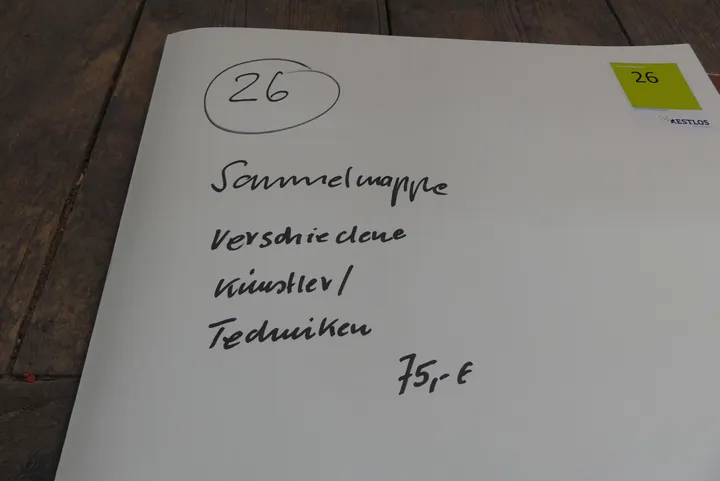 26
26
RESTLOS
Sammelmappe
verschiedene
Künstler/
Techniken
75,- €